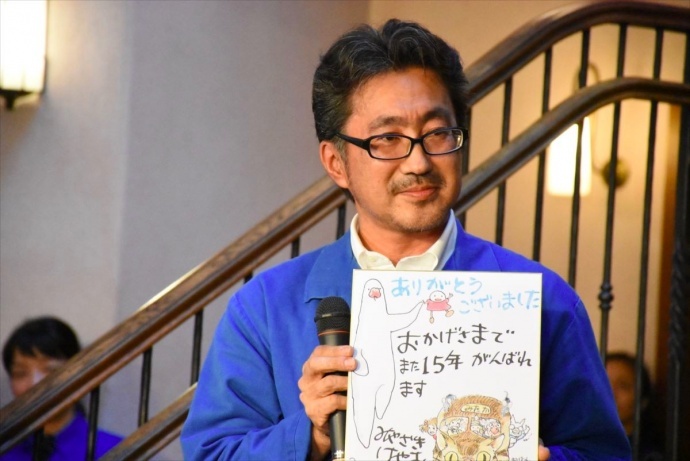 ありがとう
ございました
おかげさまで
また15年 がんばれ
ます
みやざき